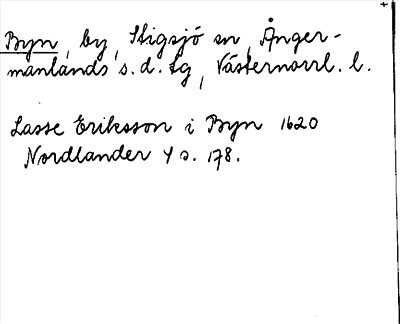 Byn, by, Stigsjö sn, Ånger-
manlands s.d. tg, Västernorrl. l.
Lasse Eriksson i Byn 1620
Nordlander 4 s. 178.